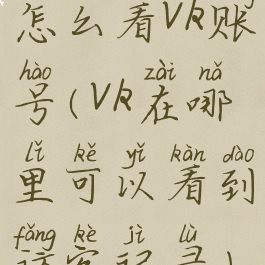 怎么看VK账
hào zài nǎ
号(VK在哪
lǐ kě yǐ kàn dào
里可以看到
fǎng kè jì lù
访客记录)